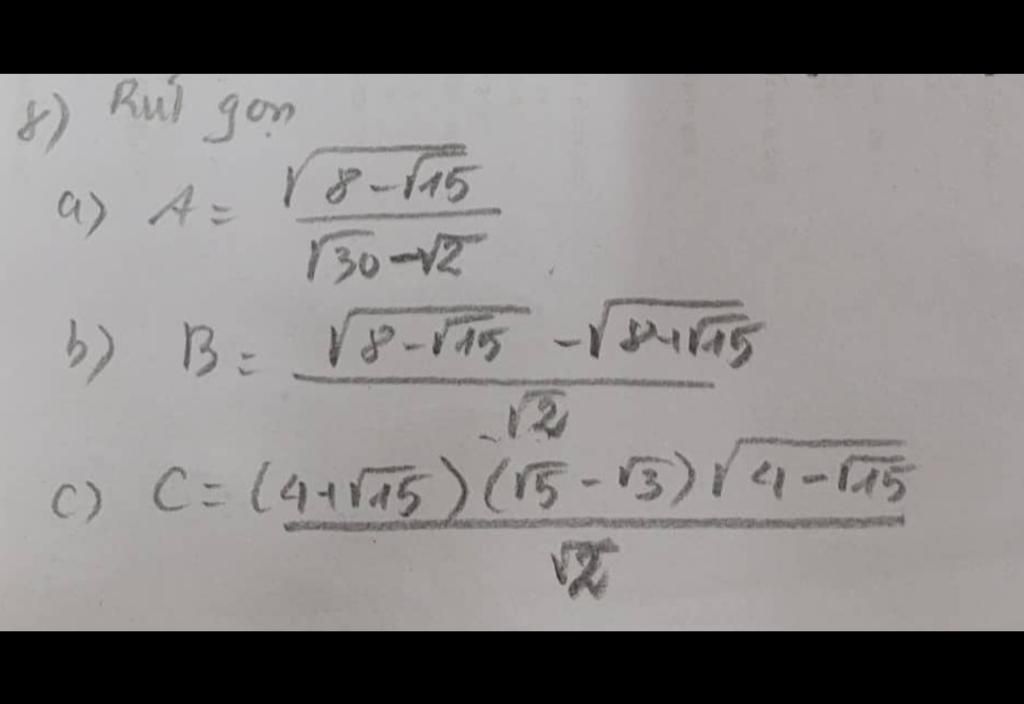 8) Rút gọn
a) A = \frac{\sqrt{8-\sqrt{15}}}{\sqrt{30}-\sqrt{2}}
b) B = \frac{\sqrt{8-\sqrt{15}}-\sqrt{8+\sqrt{15}}}{\sqrt{2}}
c) C = \frac{(4+\sqrt{15})(\sqrt{5}-\sqrt{3})\sqrt{4-\sqrt{15}}}{\sqrt{2}}